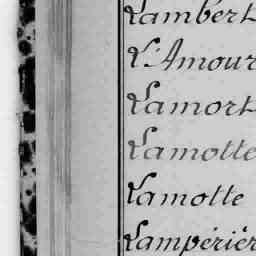 Lambert
L'Amour
Lamort
Lamotte
Lamotte
Lampérièr